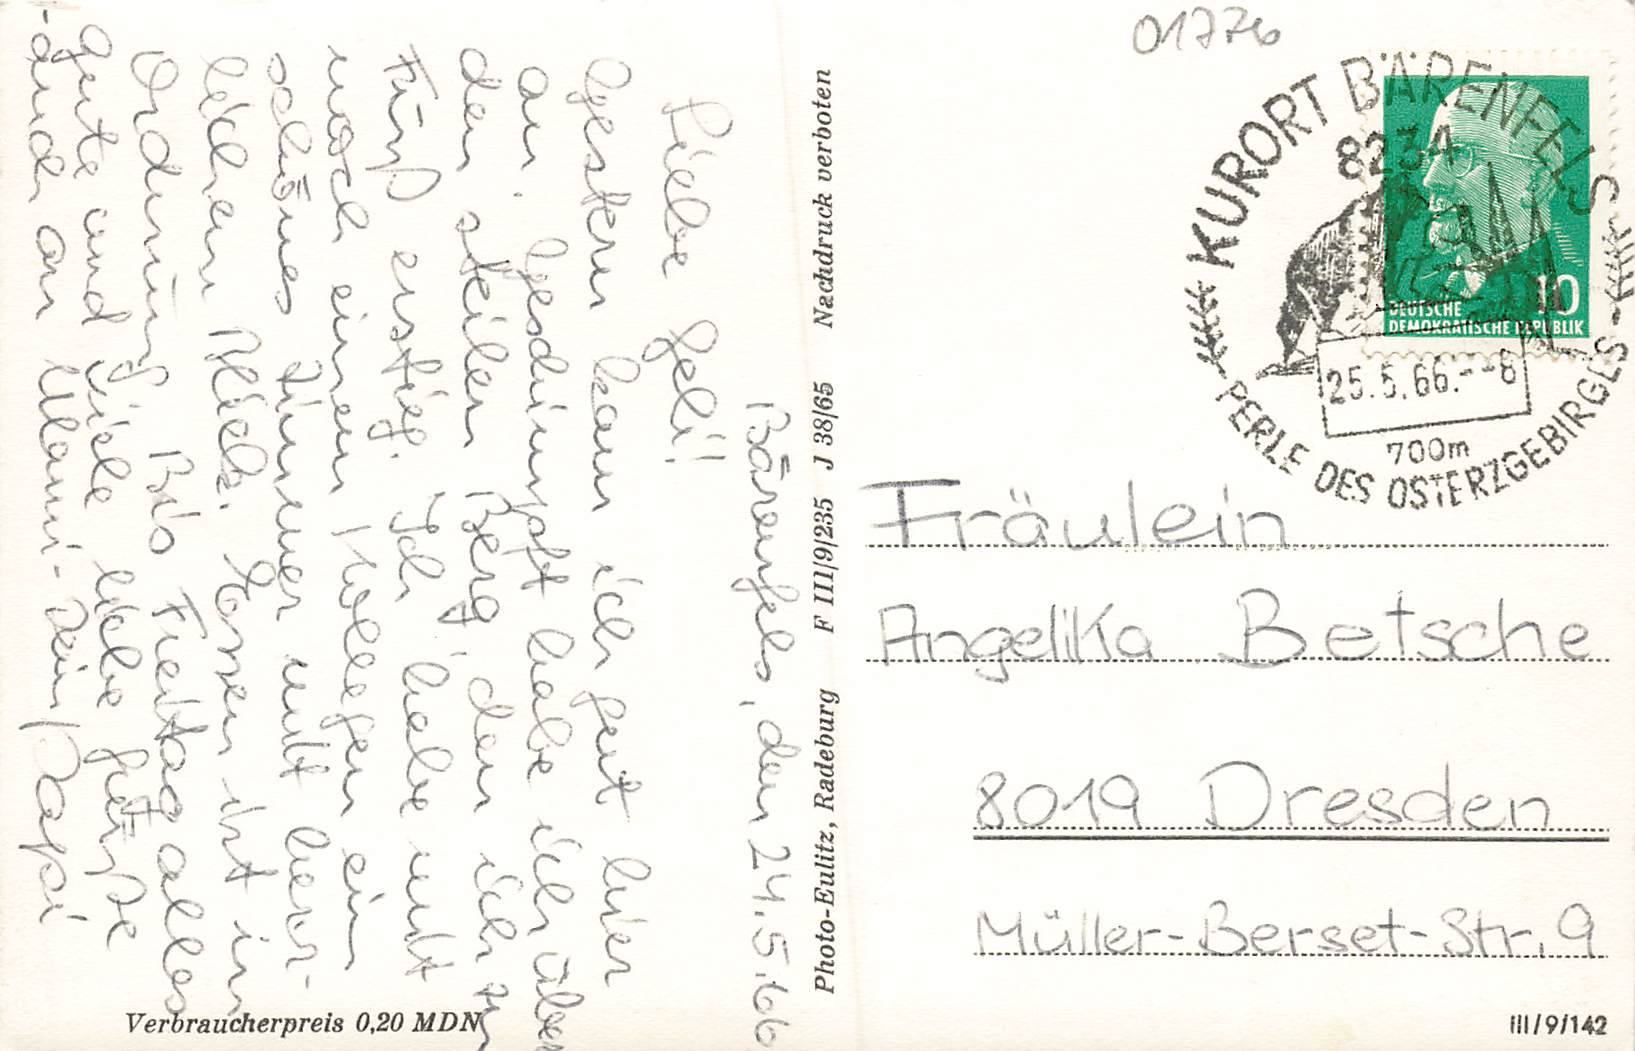 Bärenfels, den 24.5.66
Liebe Geli!
Gestern kam ich gut hier
an. Geschimpft habe ich über
den steilen Berg, den ich zu
Fuß erstieg. Ich habe mit
noch einem Kollegen ein
schönes Zimmer mit herr-
lichem Blick. Essen ist in
Ordnung. Bis Freitag alles
Gute und viele liebe Grüße
-auch an Mami- Dein Papi
Verbraucherpreis 0,20 MDN
Photo-Eulitz, Radeburg F III/9/235 J 38/65 Nachdruck verboten
01776
KURORT BÄRENFELS
8234
25.5.66.--8
700m
PERLE DES OSTERZGEBIRGES
10
DEUTSCHE
DEMOKRATISCHE REPUBLIK
Fräulein
Angelika Betsche
8019 Dresden
Müller-Berset-Str. 9
III/9/142